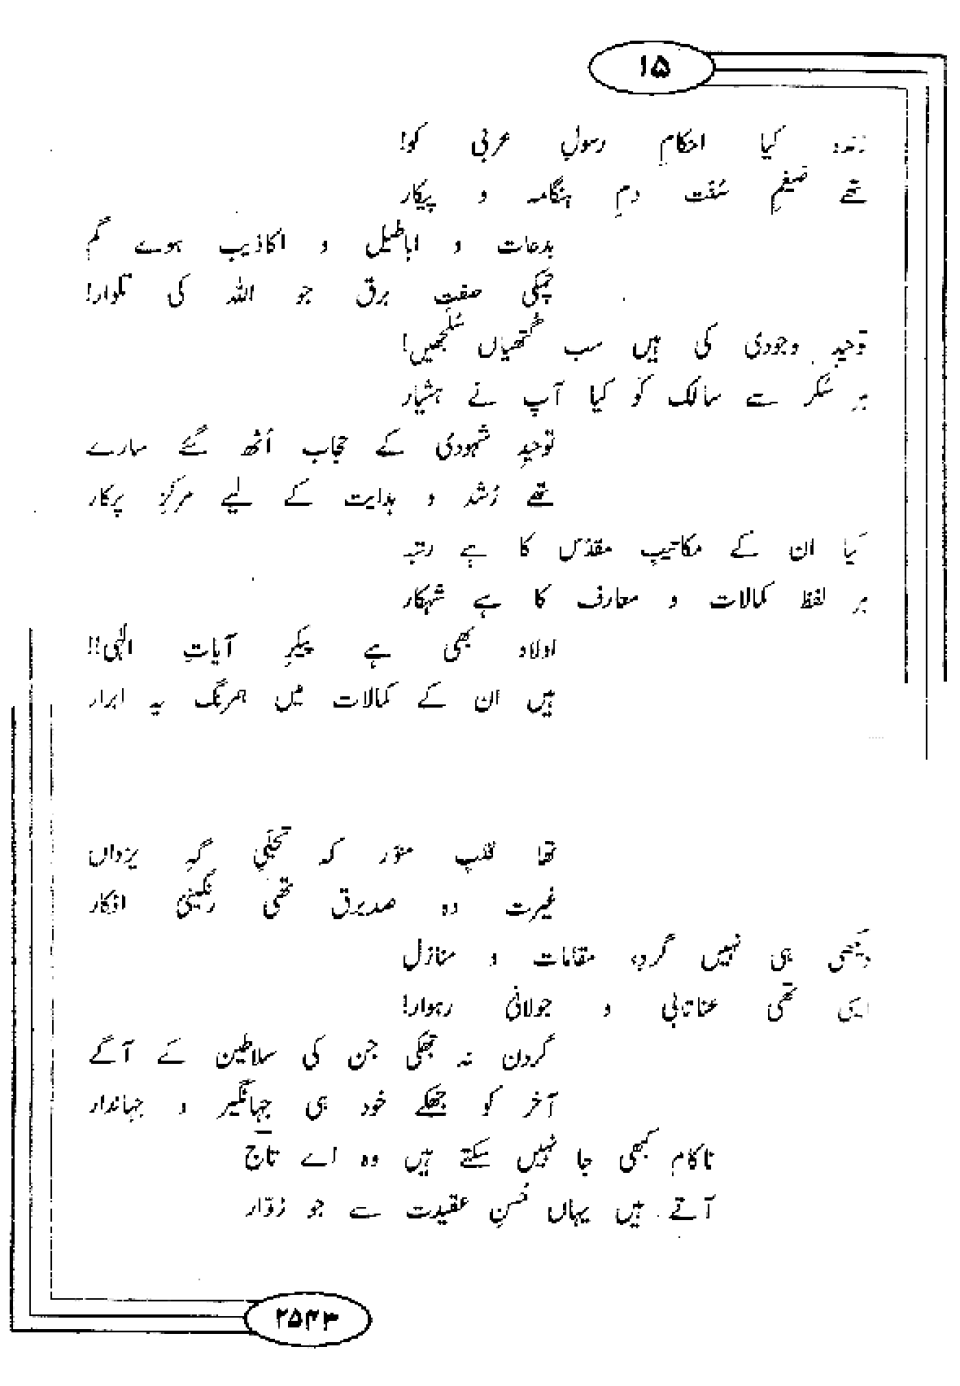 ۱۵
زندہ کیا احکامِ رسولِ عربی کو!
تھے ضیغمِ سُنّت دمِ ہنگامہ و پیکار
بدعات و اباطیل و اکاذیب ہوے گم
چمکی صفتِ برق جو اللہ کی تلوار!
توحیدِ وجودی کی ہیں سب گُتھیاں سُلجھیں!
ہر سُکر سے سالک کو کیا آپ نے ہشیار
توحیدِ شہودی کے حجاب اُٹھ گئے سارے
تھے رُشد و ہدایت کے لیے مرکزِ پرکار
کیا ان کے مکاتیبِ مقدّس کا ہے رتبہ
ہر لفظ کمالات و معارف کا ہے شہکار
اولاد بھی ہے پیکرِ آیاتِ الٰہی!!
ہیں ان کے کمالات میں ہمرنگ یہ ابرار
تھا قلبِ منوّر کہ تجلّی گہِ یزداں
غیرت دہ صد برق تھی رنگینیِ افکار
دیکھی ہی نہیں گردِ مقامات و منازل
ایسی تھی عناتابی و جولانیِ رہوار!
گردن نہ جھکی جن کی سلاطین کے آگے
آخر کو جھکے خود ہی جہانگیر و جہاندار
ناکام کبھی جا نہیں سکتے ہیں وہ اے تاج
آتے ہیں یہاں حُسنِ عقیدت سے جو زُوّار
۲۵۴۳